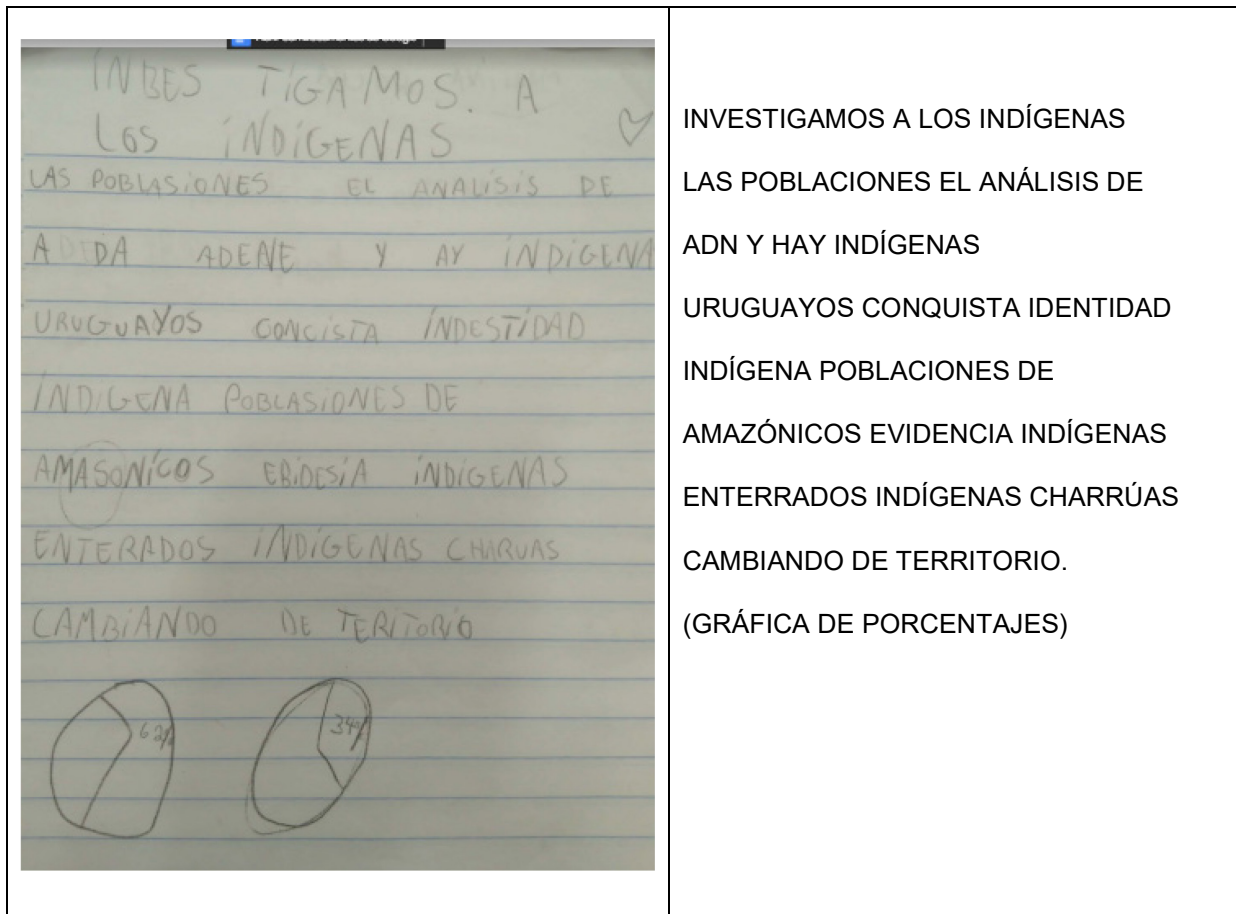 INBES TIGAMOS. A
LOS INDÍGENAS
LAS POBLASIONES EL ANALISIS DE
ADEDA ADENE Y AY INDIGENA
URUGUAYOS CONCISTA INDESTIDAD
INDIGENA POBLASIONES DE
AMASONICOS EBIDESIA INDIGENAS
ENTERADOS INDIGENAS CHARUAS
CAMBIANDO DE TERITORIO
62%
34%
INVESTIGAMOS A LOS INDÍGENAS
LAS POBLACIONES EL ANÁLISIS DE
ADN Y HAY INDÍGENAS
URUGUAYOS CONQUISTA IDENTIDAD
INDÍGENA POBLACIONES DE
AMAZÓNICOS EVIDENCIA INDÍGENAS
ENTERRADOS INDÍGENAS CHARRÚAS
CAMBIANDO DE TERRITORIO.
(GRÁFICA DE PORCENTAJES)